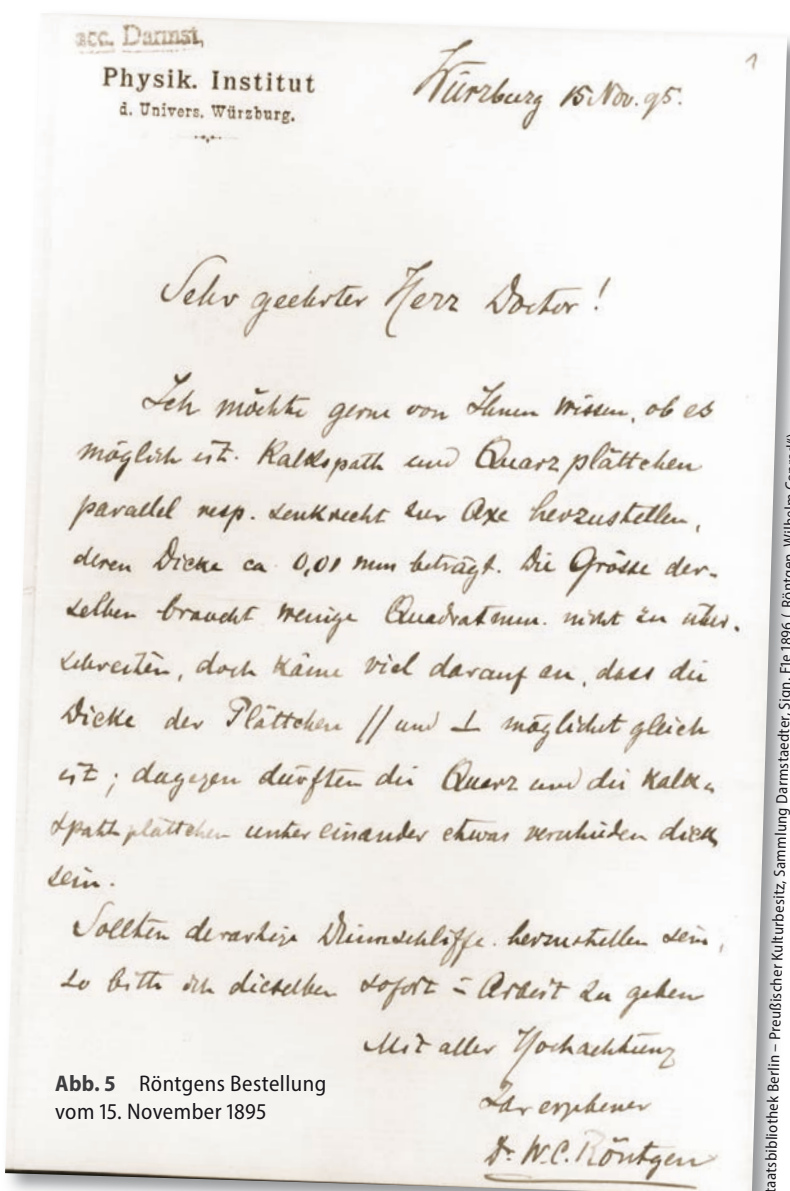 acc. Darmst,
Physik. Institut
d. Univers. Würzburg.
Würzburg 15 Nov. 95.
1
Sehr geehrter Herr Doctor!
Ich möchte gerne von Ihnen wissen, ob es
möglich ist Kalkspath und Quarzplättchen
parallel resp. senkrecht zur Axe herzustellen,
deren Dicke ca 0,01 mm beträgt. Die Grösse der-
selben braucht wenige Quadratmm. nicht zu über-
schreiten, doch käme viel darauf an, dass die
Dicke der Plättchen // und ⊥ möglichst gleich
ist; dagegen dürften die Quarz und die Kalk-
spathplättchen unter einander etwas verschieden dick
sein.
Sollten derartige Dünnschliffe herzustellen sein,
so bitte ich dieselben sofort in Arbeit zu geben
Mit aller Hochachtung
Ihr ergebener
Dr. W. C. Röntgen
Abb. 5 Röntgens Bestellung
vom 15. November 1895
taatsbibliothek Berlin – Preußischer Kulturbesitz, Sammlung Darmstaedter, Sign. F1e 1896 (Röntgen, Wilhelm